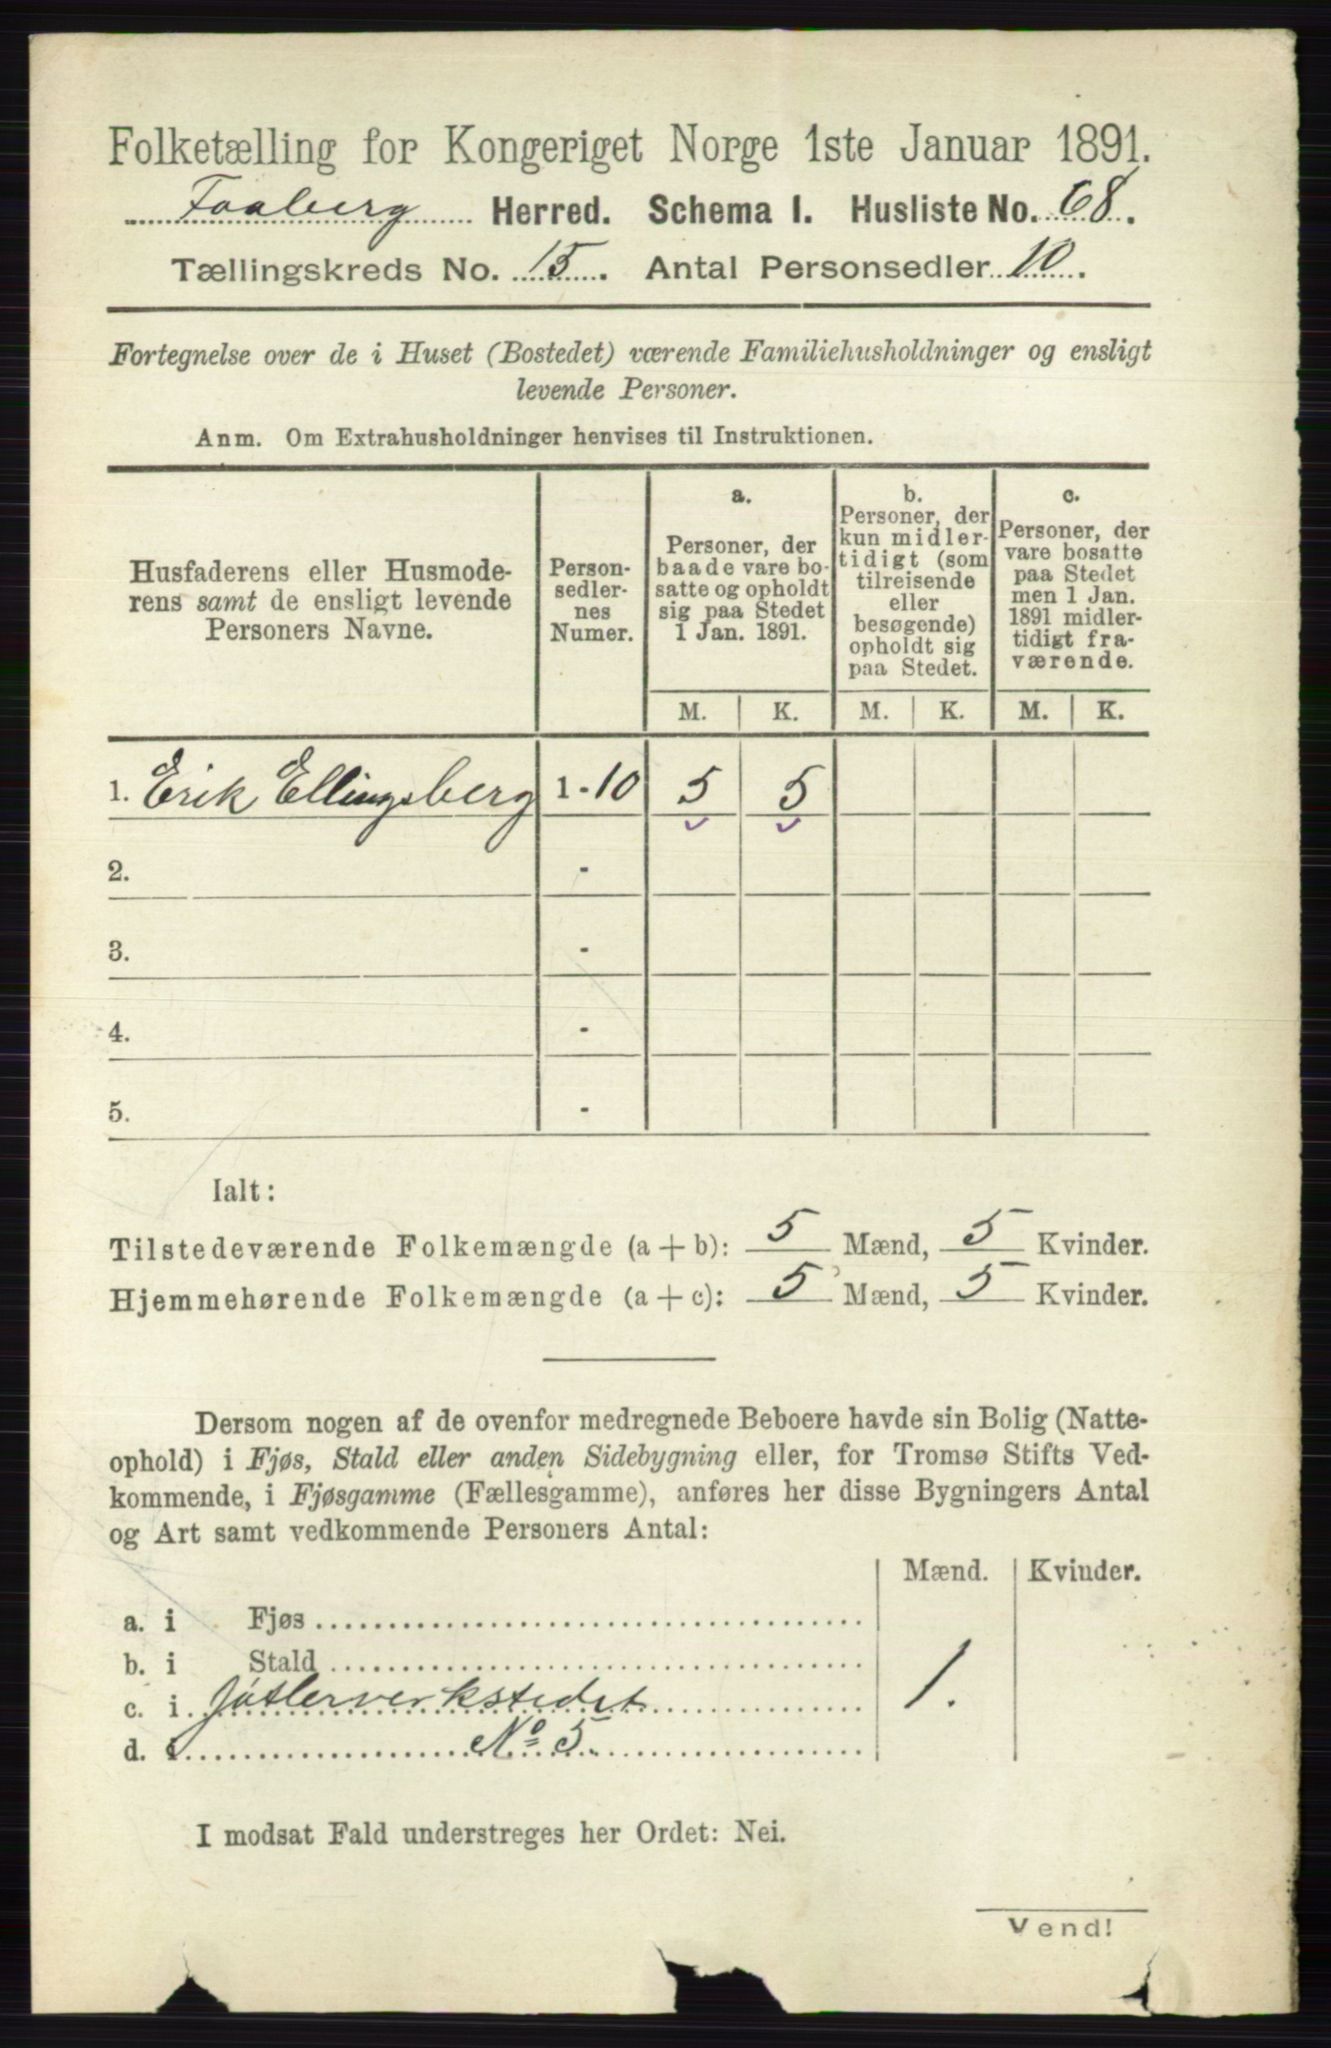 Folketælling for Kongeriget Norge 1ste Januar 1891.
Faaberg Herred. Schema I. Husliste No. 68.
Tællingskreds No. 15. Antal Personsedler 10.
Fortegnelse over de i Huset (Bostedet) værende Familiehusholdninger og ensligt
levende Personer.
Anm. Om Extrahusholdninger henvises til Instruktionen.
Husfaderens eller Husmode-
rens samt de ensligt levende
Personers Navne.
Person-
sedler-
nes
Numer.
a.
Personer, der
baade vare bo-
satte og opholdt
sig paa Stedet
1 Jan. 1891.
b.
Personer, der
kun midler-
tidigt (som
tilreisende
eller
besøgende)
opholdt sig
paa Stedet.
c.
Personer, der
vare bosatte
paa Stedet
men 1 Jan.
1891 midler-
tidigt fra-
værende.
M. K. M. K. M. K.
1. Erik Ellingsberg 1-10 5 5
2. -
3. -
4. -
5. -
Ialt:
Tilstedeværende Folkemængde (a + b): 5 Mænd, 5 Kvinder.
Hjemmehørende Folkemængde (a + c): 5 Mænd, 5 Kvinder.
Dersom nogen af de ovenfor medregnede Beboere havde sin Bolig (Natte-
ophold) i Fjøs, Stald eller anden Sidebygning eller, for Tromsø Stifts Ved-
kommende, i Fjøsgamme (Fællesgamme), anføres her disse Bygningers Antal
og Art samt vedkommende Personers Antal:
Mænd. Kvinder.
a. i Fjøs
b. i Stald
c. i 1.
d. i No 5.
I modsat Fald understreges her Ordet: Nei.
Vend!